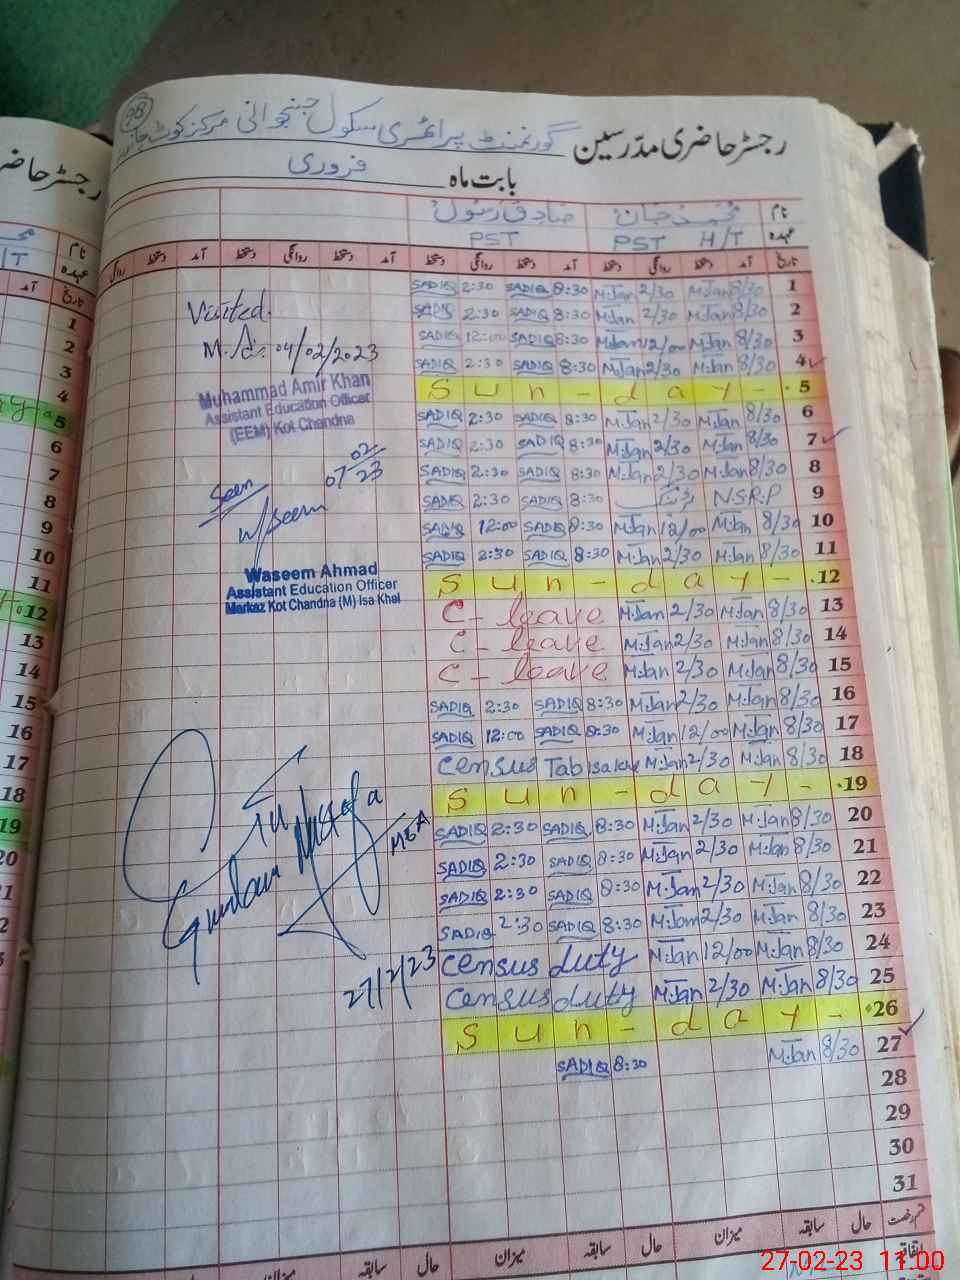 28
رجسٹر حاضری مدرسین گورنمنٹ پرائمری سکول جنجوانی مرکز کوٹ چاندنہ
بابت ماہ فروری
نام محمد جان صادق رسول
عہدہ PST H/T PST
تاریخ آمد دستخط روانگی دستخط آمد دستخط روانگی دستخط آمد دستخط روانگی دستخط آمد دستخط روانگی
SADIQ 2:30 SADIQ 8:30 M.Jan 2/30 M.Jan 8/30 1
SADIQ 2:30 SADIQ 8:30 M.Jan 2/30 M.Jan 8/30 2
SADIQ 12:00 SADIQ 8:30 M.Jan 12/00 M.Jan 8/30 3
SADIQ 2:30 SADIQ 8:30 M.Jan 2/30 M.Jan 8/30 4
Sun-day- 5
SADIQ 2:30 SADIQ 8:30 M.Jan 2/30 M.Jan 8/30 6
SADIQ 2:30 SADIQ 8:30 M.Jan 2/30 M.Jan 8/30 7
SADIQ 2:30 SADIQ 8:30 M.Jan 2/30 M.Jan 8/30 8
SADIQ 2:30 SADIQ 8:30 N.S.R.P 9
SADIQ 12:00 SADIQ 8:30 M.Jan 12/00 M.Jan 8/30 10
SADIQ 2:30 SADIQ 8:30 M.Jan 2/30 M.Jan 8/30 11
Sun-day- 12
C-leave M.Jan 2/30 M.Jan 8/30 13
C-leave M.Jan 2/30 M.Jan 8/30 14
C-leave M.Jan 2/30 M.Jan 8/30 15
SADIQ 2:30 SADIQ 8:30 M.Jan 2/30 M.Jan 8/30 16
SADIQ 12:00 SADIQ 8:30 M.Jan 12/00 M.Jan 8/30 17
Census M.Jan 2/30 M.Jan 8/30 18
Sun-day- 19
SADIQ 2:30 SADIQ 8:30 M.Jan 2/30 M.Jan 8/30 20
SADIQ 2:30 SADIQ 8:30 M.Jan 2/30 M.Jan 8/30 21
SADIQ 2:30 SADIQ 8:30 M.Jan 2/30 M.Jan 8/30 22
SADIQ 2:30 SADIQ 8:30 M.Jan 2/30 M.Jan 8/30 23
Census duty M.Jan 12/00 M.Jan 8/30 24
Census duty M.Jan 2/30 M.Jan 8/30 25
Sun-day- 26
SADIQ 8:30 M.Jan 8/30 27
28
29
30
31
Visited.
04/02/2023
Muhammad Amir Khan
Assistant Education Officer
(EEM) Kot Chandna
Seen 07/02/23
Waseem
Waseem Ahmad
Assistant Education Officer
Markaz Kot Chandna (M) Isa Khel
Ghulam Mustafa
MEA
27/2/23
قسم رخصت حال سابقہ میزان حال سابقہ میزان حال سابقہ
اتفاقیہ
27-02-23 11:00